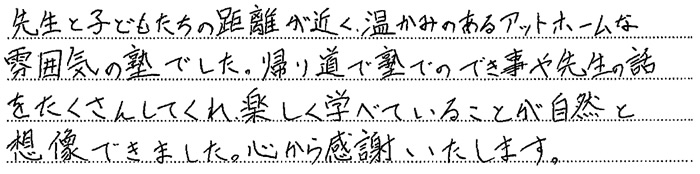 先生と子どもたちの距離が近く、温かみのあるアットホームな
雰囲気の塾でした。帰り道で塾でのでき事や先生の話
をたくさんしてくれ、楽しく学べていることが自然と
想像できました。心から感謝いたします。